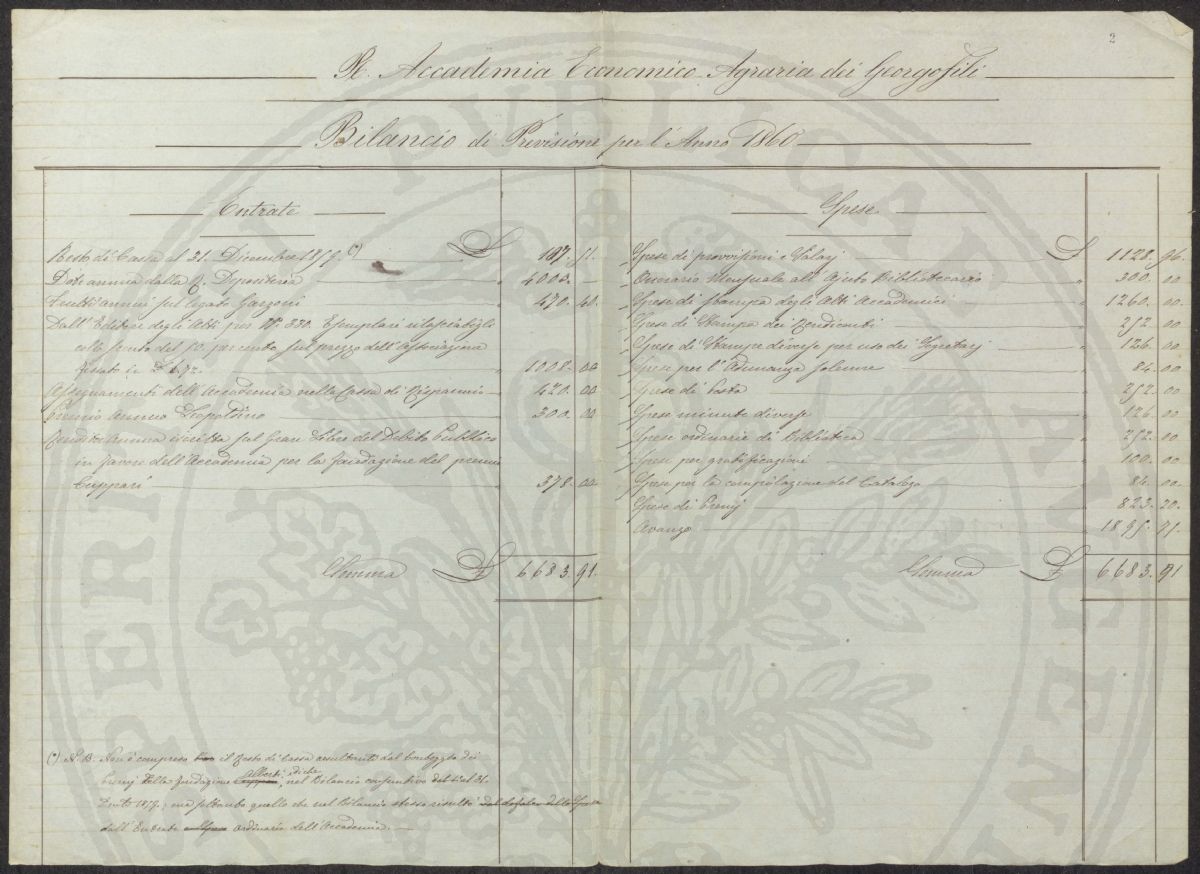 2
R. Accademia Economico-Agraria dei Georgofili
Bilancio di Previsione per l'Anno 1860
Entrate
Resto di Cassa al 31. Dicembre 1859. (*) £ 107. 51.
Dote annua dalla R. Depositeria " 4000. —
Frutti annui sul legato Garzoni " 470. 40
Dall'Editore degli Atti per N.° 330. Esemplari rilasciatigli
collo sconto del 50. per cento sul prezzo dell'Associazione
fissato in £ 6.72 " 1008. 00
Assegnamenti dell'Accademia nella Cassa di Risparmio 420. 00
Premio Annuo Leopoldino 300. 00
Rendita Annua iscritta sul Gran Libro del Debito Pubblico
in favore dell'Accademia per la fondazione del premio
Cuppari " 378. 00
Somma £ 6683. 91.
Spese
Spese di provvisioni e Salarj £ 1128. 96.
Onorario Mensuale all'Ajuto Bibliotecario " 300. 00
Spese di stampa degli Atti Accademici " 1260. 00
Spese di Stampa dei Rendiconti " 252. 00
Spese di Stampe diverse per uso dei Segretarj " 126. 00
Spese per l'Adunanza Solenne " 84. 00
Spese di Posta " 252. 00
Spese minute diverse " 126. 00
Spese ordinarie di Biblioteca " 252. 00
Spese per gratificazioni " 100. 00
Spese per la compilazione del Catalogo " 84. 00
Spese di Premj " 823. 20.
Avanzo " 1895. 75.
Somma £ 6683. 91
(*) N.B. Non è compreso il Resto di Cassa resultante dal conteggio dei
Premj della fondazione Alberti, nel Bilancio consuntivo del dì 31.
1859; ma soltanto quello che nel Bilancio stesso risultò
dall'Entrate ordinarie dell'Accademia. —
PERPETVA
PVBLICAE